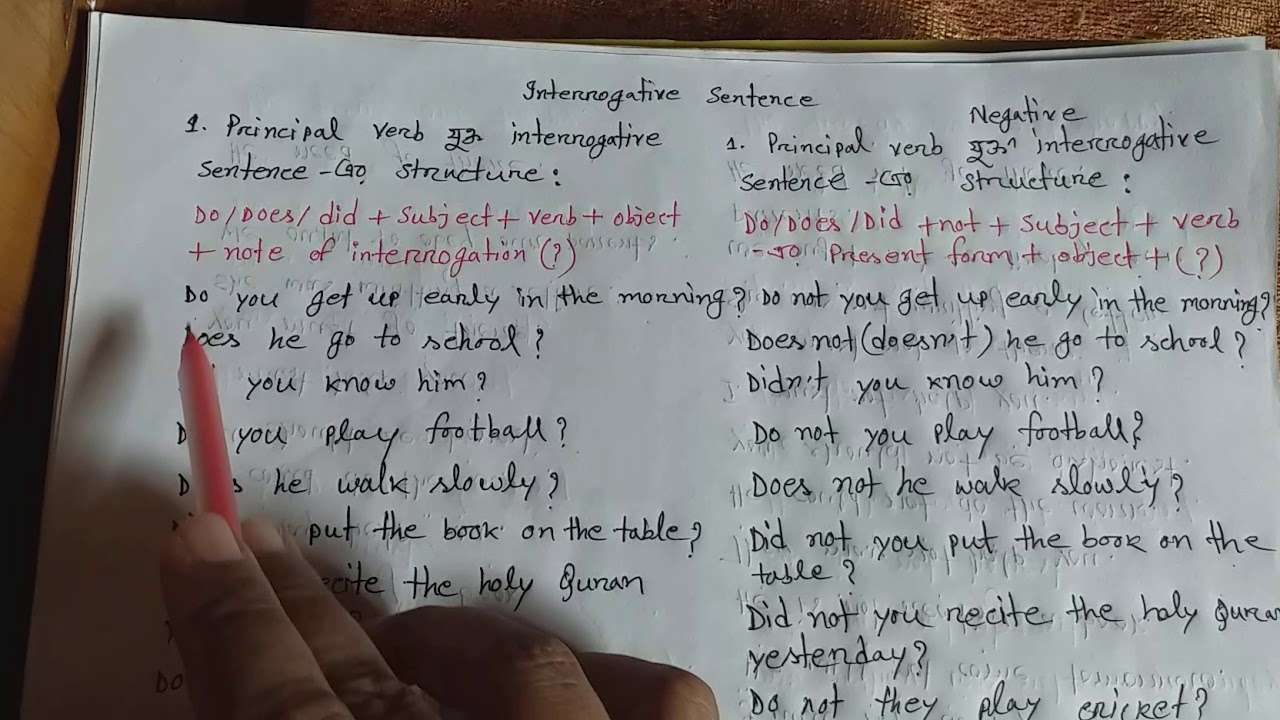 Interrogative Sentence
1. Principal verb যুক্ত interrogative
Sentence -এর structure:
Do/Does/did + Subject + verb + object
+ note of interrogation (?)
Do you get up early in the morning?
Does he go to school?
you know him?
you play football?
he walk slowly?
put the book on the table?
the holy Quran
Do
Negative
1. Principal verb যুক্ত interrogative
Sentence -এর structure:
Do/Does/Did +not + Subject + verb
-এর Present form + object + (?)
Do not you get up early in the morning?
Does not (doesn't) he go to school?
Didn't you know him?
Do not you play football?
Does not he walk slowly?
Did not you put the book on the
table?
Did not you recite the holy Quran
yesterday?
Do not they play cricket?